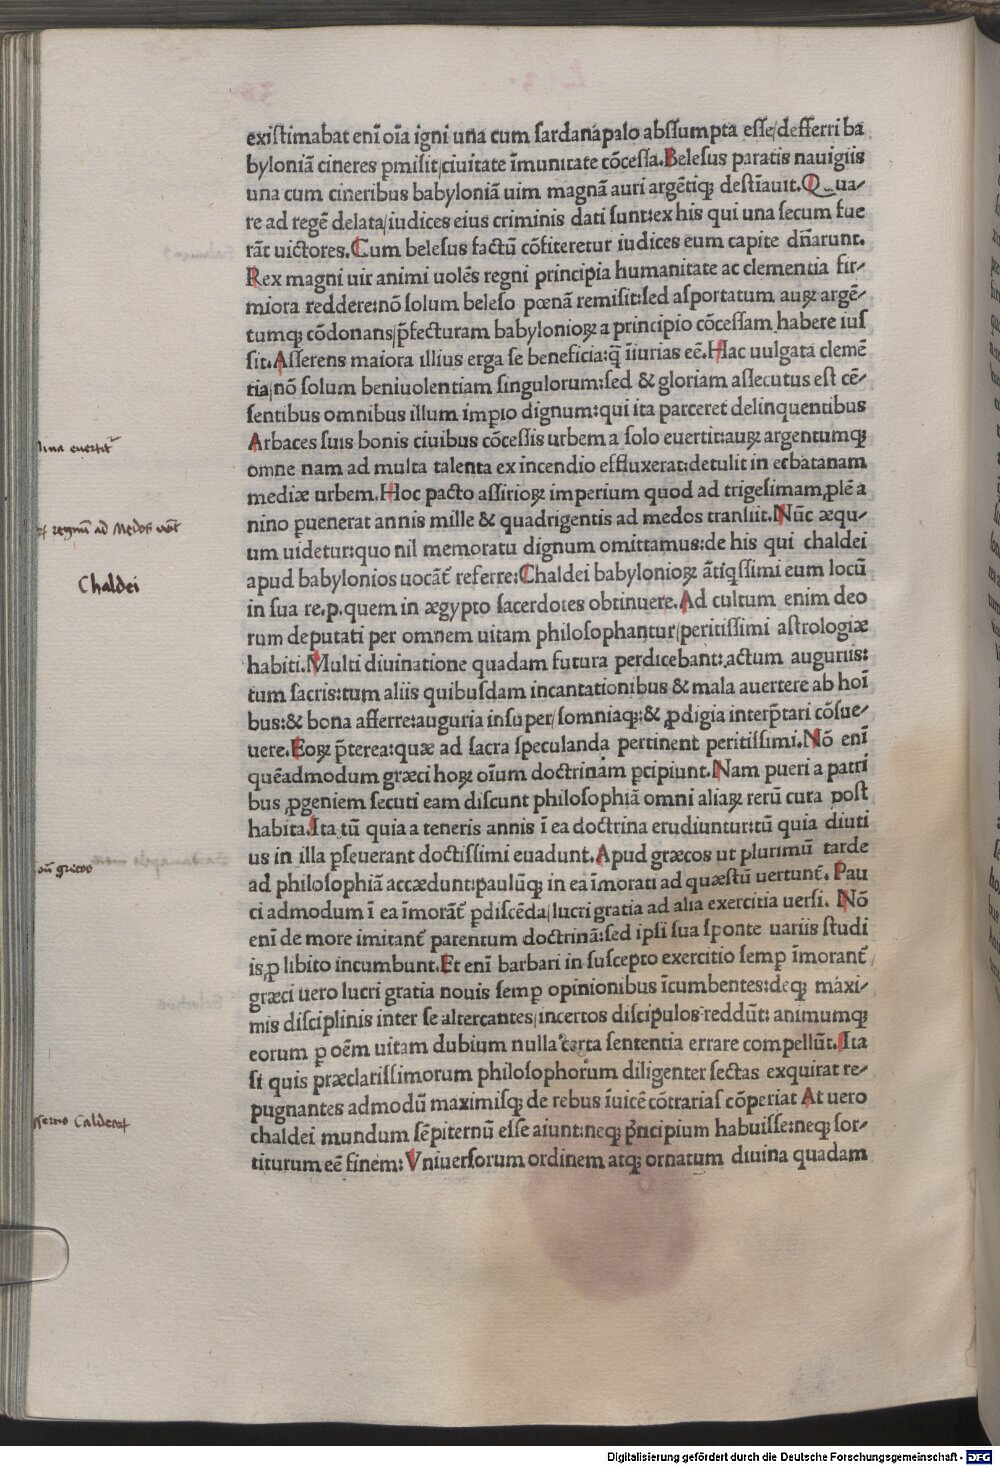 existimabat enī oīa igni una cum sardanapalo abssumpta esse/defferri ba
byloniā cineres ꝑmisit/ciuitate īmunitate cōcessa.Belesus paratis nauigiis
una cum cineribus babyloniā uim magnā auri argētiqꝫ destīauit.Qua/
re ad regē delata/iudices eius criminis dati sunt:ex his qui una secum fue
rāt uictores.Cum belesus factū cōfiteretur iudices eum capite dn̄arunt.
Rex magni uir animi uolēs regni principia humanitate ac clementia fir/
miora reddere:nō solum beleso pœnā remisit:sed asportatum auꝝ argē/
tumqꝫ cōdonans/p̄fecturam babylonioꝝ a principio cōcessam habere ius
sit.Asserens maiora illius erga se beneficia:q̄ īiurias eē.Hac uulgata clemē
tia/nō solum beniuolentiam singulorum:sed & gloriam assecutus est cē/
sentibus omnibus illum impio dignum:qui ita parceret delinquentibus
Arbaces suis bonis ciuibus cōcessis urbem a solo euertit:auꝝ argentumqꝫ
omne nam ad multa talenta ex incendio effluxerat:detulit in ecbatanam
mediæ urbem.Hoc pacto assirioꝝ imperium quod ad trigesimam ꝓlē a
nino puenerat annis mille & quadrigentis ad medos transiit.Nūc æqu/
um uidetur:quo nil memoratu dignum omittamus:de his qui chaldei
apud babylonios uocāt̄ referre:Chaldei babylonioꝝ ātiqssimi eum locū
in sua re.p.quem in ægypto sacerdotes obtinuere.Ad cultum enim deo
rum deputati per omnem uitam philosophantur/peritissimi astrologiæ
habiti.Multi diuinatione quadam futura perdicebant:actum auguriis:
tum sacris:tum aliis quibusdam incantationibus & mala auertere ab hoī
bus:& bona afferre:auguria insuper/somniaqꝫ:& ꝓdigia interp̄tari cōsue/
uere.Eoꝝ p̄terea:quæ ad sacra speculanda pertinent peritissimi.Nō enī
quēadmodum græci hoꝝ oīum doctrinam ꝑcipiunt.Nam pueri a patri
bus ꝓgeniem secuti eam discunt philosophiā omni aliaꝝ rerū cura post
habita.Ita tū quia a teneris annis ī ea doctrina erudiuntur:tū quia diuti
us in illa ꝑseuerant doctissimi euadunt.Apud græcos ut plurimū tarde
ad philosophiā accædunt:paulūqꝫ in ea īmorati ad quæstū uertunt̄. Pau
ci admodum ī ea īmorāt̄ ꝑdiscēda/lucri gratia ad alia exercitia uersi. Nō
enī de more imitant̄ parentum doctrinā:sed ipsi sua sponte uariis studi
is,ꝓ libito incumbunt.Et enī barbari in suscepto exercitio semꝑ īmorant̄
græci uero lucri gratia nouis semꝑ opinionibus īcumbentes:deqꝫ maxi/
mis disciplinis inter se altercantes/incertos discipulos reddūt: animumqꝫ
eorum ꝑ oēm uitam dubium nulla certa sententia errare compellūt.Ita
si quis præclatissimorum philosophorum diligenter sectas exquirat re/
pugnantes admodū maximisqꝫ de rebus īuicē cōtrarias cōperiat At uero
chaldei mundum sēpiternū esse aiunt:neqꝫ pͥncipium habuisse:neqꝫ sor/
titurum eē finem:Vniuersorum ordinem atqꝫ ornatum diuina quadam
euertit̄
regnū ad Medos
Chaldei
grecos
Caldeoꝝ
Digitalisierung gefördert durch die Deutsche Forschungsgemeinschaft - DFG